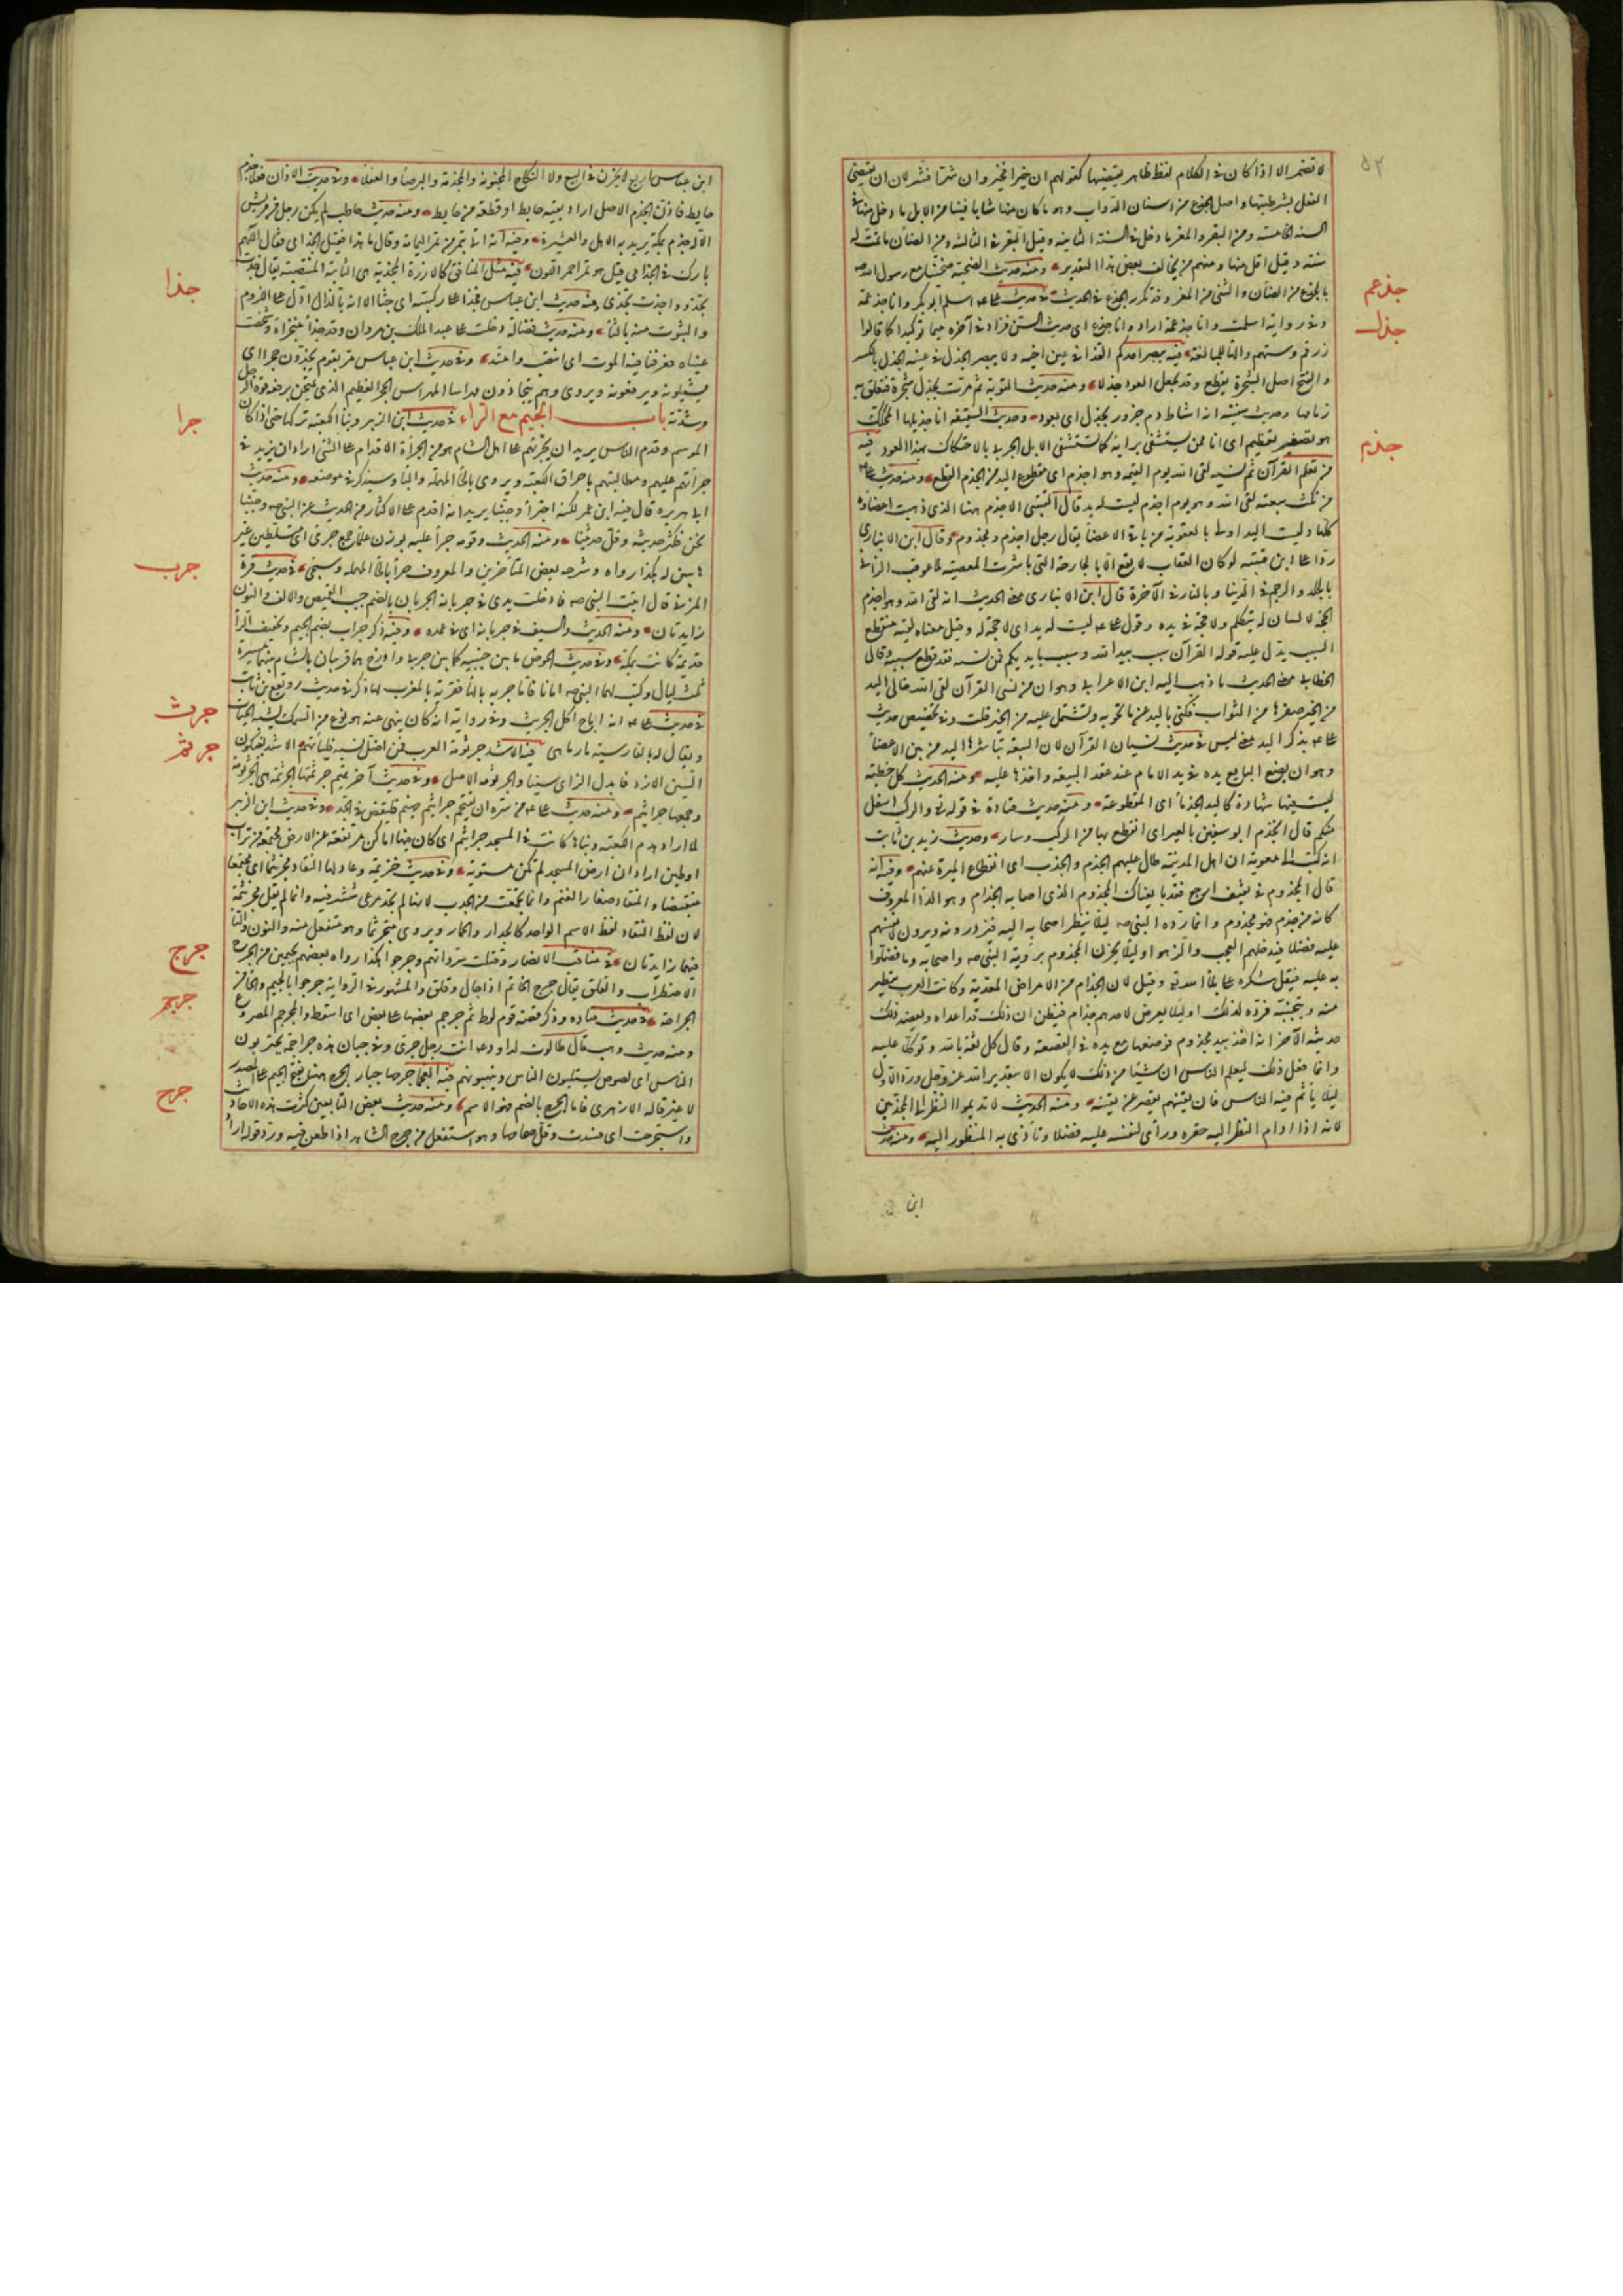 ٥٢
لا تضمر الا اذا كان فى الكلام لفظ ظاهر يقتضيها كقولهم ان خيرا فخير وان شرا فشر لان ان يقتضى
الفعل بشرطيتها واصل الجذع من اسنان الدواب وهو ما كان منها شابا فتيا فمن الابل ما دخل فى
السنه الخامسة ومن البقر والمعز ما دخل فى السنة الثانيه وقيل البقر فى الثالثه ومن الضأن ما تمت له
سنة وقيل اقل منها ومنهم من يخالف بعض هذا التقدير ومنه حديث الضحية ضحينا مع رسول الله
بالجذع من الضأن والثنى من المعز وقد تكرر الجذع فى الحديث فى حديث على اسلم ابو بكر وانا جذعمة
جذعم
وفى رواية اسلمت وانا جذعمة اراد وانا جذع اى حديث السن فزاد فى آخره ميما توكيدا كما قالوا
زرقم وستهم والتا للمبالغة فيه يبصر احدكم القذا فى عين اخيه ولا يبصر الجذل فى عينه الجذل بالكسر
جذل
والفتح اصل الشجرة يقطع وقد يجعل العود جذلا ومنه حديث التوبة ثم مرت بجذل شجرة فتعلق به
زمامها وحديث سفينة انه اشاط دم جزور بجذل اى بعود وحديث السقيفه انا جذيلها المحكك
هو تصغير تعظيم اى انا ممن يستشفى برايه كما تستشفى الابل الجربى بالاحتكاك بهذا العود فيه
جذم
من تعلم القرآن ثم نسيه لقى الله يوم القيمه وهو اجذم اى مقطوع اليد من الجذم القطع ومنه حديث على
من نكث بيعته لقى الله وهو يوم اجذم ليست له يد قال القتيبى الاجذم ههنا الذى ذهبت اعضاؤه
كلها وليست اليد اولى بالعقوبة من باقى الاعضا يقال رجل اجذم ومجذوم وقال ابن الانبارى
ردا على ابن قتيبه لو كان العقاب لا يقع الا بالجارحة التى باشرت المعصية لما عوقب الزانى
بالجلد والرجم فى الدنيا وبالنار فى الآخرة قال ابن الانبارى معنى الحديث انه لقى الله وهو اجذم
الحجة لا لسان له يتكلم ولا حجة فى يده وقول على ليست له يد اى لا حجة له وقيل معناه لقيه منقطع
السبب يدل عليه قوله القرآن سبب بيد الله وسبب بايديكم فمن نسيه فقد قطع سببه وقال
الخطابى معنى الحديث ما ذهب اليه ابن الاعرابى وهو ان من نسى القرآن لقى الله خالى اليد
من الخير صفرها من الثواب فكنى باليد عن ما تحويه وتشتمل عليه من الخير قلت وفى تخصيص حديث
على بذكر اليد معنى ليس فى حديث نسيان القرآن لان البيعة تباشرها اليد من بين الاعضا
وهو ان يضع المبايع يده فى يد الامام عند عقد البيعة واخذها عليه ومنه الحديث كل خطبة
ليست فيها شهادة كاليد الجذما اى المقطوعة ومنه حديث قتادة فى قوله والركب اسفل
منكم قال انجذم ابو سفين بالعير اى انقطع بها من الركب وسار وحديث زيد بن ثابت
انه كتب الى معوية ان اهل المدينة طال عليهم الجذم والجذب اى انقطاع الميرة عنهم وفيه انه
قال لمجذوم فى ثقيف ارجع فقد بايعناك المجذوم الذى اصابه الجذام وهو الدا المعروف
كانه من جذم فهو مجذوم وانما رده النبى ليلا ينظر اصحابه اليه فيزدرونه ويرون لانفسهم
عليه فضلا فيدخلهم العجب والزهو او ليلا يحزن المجذوم برؤية النبى واصحابه وما فضلوا
به عليه فيقل شكره على بلأ الله وقيل لان الجذام من الامراض المعدية وكانت العرب تتطير
منه وتجنبه فرده لذلك او ليلا يعرض لاحدهم جذام فيظن ان ذلك قد اعداه ويعضد ذلك
حديثه الآخر انه اخذ بيد مجذوم فوضعها مع يده فى القصعة وقال كل ثقة بالله وتوكلا عليه
وانما فعل ذلك ليعلم الناس ان شيئا من ذلك لا يكون الا بتقدير الله عز وجل ورد الاول
ليلا يأثم فيه الناس فان يقينهم يقصر عن يقينه ومنه الحديث لا تديموا النظر الى المجذمين
لانه اذا ادام النظر اليه حقره ورأى لنفسه عليه فضلا وتأذى به المنظور اليه ومنه حديث
ابن
ابن عباس اربع لا يجزن فى البيع ولا النكاح المجنونة والمجذمة والبرصا والعفلا وفى حديث الاذان فعلا جذم
حايط فاذن الجذم الاصل اراد بقية حايط او قطعة من حايط ومنه حديث حاطب لم يكن رجل من قريش
الا له جذم بمكة يريد به الاهل والعشيرة وفيه انه اتى بتمر من تمر اليمامة وقال ما هذا فقيل الجذامى فقال اللهم
بارك فى الجذامى قيل هو تمر احمر اللون فيه مثل المنافق كالارزة المجذية هى الثابتة المنتصبة يقال جذت
جذا
تجذو واجذت تجذى ومنه حديث ابن عباس فجذا على ركبتيه اى جثا الا انه بالذال ادل على اللزوم
والثبوت منه بالثا ومنه حديث فضالة دخلت على عبد الملك بن مروان وقد جذا منخراه وشخصت
عيناه فعرفنا فيه الموت اى انتصب وامتد وفى حديث ابن عباس مر بقوم يجذون حجرا اى
يشيلونه ويرفعونه ويروى وهم يتجاذون مهراسا المهراس الحجر العظيم الذى يمتحن برفعه قوة الرجل
وشدته باب الجيم مع الراء فى حديث ابن الزبير وبنأ الكعبة تركها حتى اذا كان
جرا
الموسم وقدم الناس يريد ان يجرئهم على اهل الشام هو من الجرأة الاقدام على الشى اراد ان يزيد فى
جرأتهم عليهم ومطالبتهم باحراق الكعبة ويروى بالحأ المهملة والبأ وسيذكر فى موضعه ومنه حديث
ابى هريره قال فيه ابن عمر لكنه اجترأ وجبنا يريد انه اقدم على الاكثار من الحديث عن النبى وجبنا
نحن فكثر حديثه وقل حديثنا ومنه الحديث وقومه جرآ عليه بوزن علمأ جمع جرئ اى متسلطين غير
هايبين له هكذا رواه وشرحه بعض المتأخرين والمعروف حرآ بالحأ المهملة وسيجئ فى حديث قرة
جرب
المزنى قال اتيت النبى فادخلت يدى فى جربانه الجربان بالضم جيب القميص والالف والنون
زايدتان ومنه الحديث والسيف فى جربانه اى فى غمده وفيه ذكر جراب بضم الجيم وتخفيف الرأ
قديمة كانت بمكة وفى حديث الحوض ما بين جنبيه كما بين جربى واذرح هما قريتان بالشام بينهما مسيرة
ثلث ليال وكتب لهما النبى امانا فاما جربه بالهأ فقرية بالمغرب لها ذكر فى حديث رويفع بن ثابت
فى حديث على انه اباح اكل الجريث وفى رواية انه كان ينهى عنه هو نوع من السمك يشبه الحيات
جرث
ويقال له بالفارسية مارماهى فيه الاسد جرثومة العرب فمن اضل نسبه فليأتهم الاسد بسكون
جرثم
السين الازد فابدل الزاى سينا والجرثومة الاصل وفى حديث آخر تميم برثمتها وجرثمتها الجرثمة هى الجرثومة
وجمعها جراثيم ومنه حديث على من سره ان يتقحم جراثيم جهنم فليقض فى الجد وفى حديث ابن الزبير
لما اراد هدم الكعبة وبناها كانت فى المسجد جراثيم اى كان فيها اماكن مرتفعة عن الارض مجتمعة من تراب
او طين اراد ان ارض المسجد لم تكن مستوية وفى حديث خزيمة وعاد لها النقاد مجرنثما اى مجتمعا
منقبضا والنقاد صغار الغنم وانما تجمعت من الجدب لانها لم تجد مرعى تنتشر فيه وانما لم يقل مجرنثمة
لان لفظ النقاد لفظ الاسم الواحد كالجدار والخمار ويروى متجرثما وهو متفعل منه والنون والتا
فيهما زايدتان فى مناقب الانصار وقتلت سرواتهم وجرجوا هكذا رواه بعضهم بجيمين من الجرج
جرج
الاضطراب والقلق يقال جرج الخاتم اذا جال وقلق والمشهور فى الرواية جرحوا بالجيم والحا من
الجراحة فى حديث قتاده وذكر قصة قوم لوط ثم جرجم بعضها على بعض اى اسقط والمجرجم المصروع
جرجم
ومنه حديث وهب قال طالوت لداود انت رجل جرئ وفى جبالنا هذه جراجمة يحتربون
الناس اى لصوص يستلبون الناس وينهبونهم فيه العجمأ جرحها جبار الجرح ههنا بفتح الجيم على المصدر
جرح
لا غير قاله الازهرى فاما الجرح بالضم فهو الاسم ومنه حديث بعض التابعين كثرت هذه الاحاديث
واستجرحت اى فسدت وقل صحاحها وهو استفعل من جرح الشاهد اذا طعن فيه ورد قوله اراد